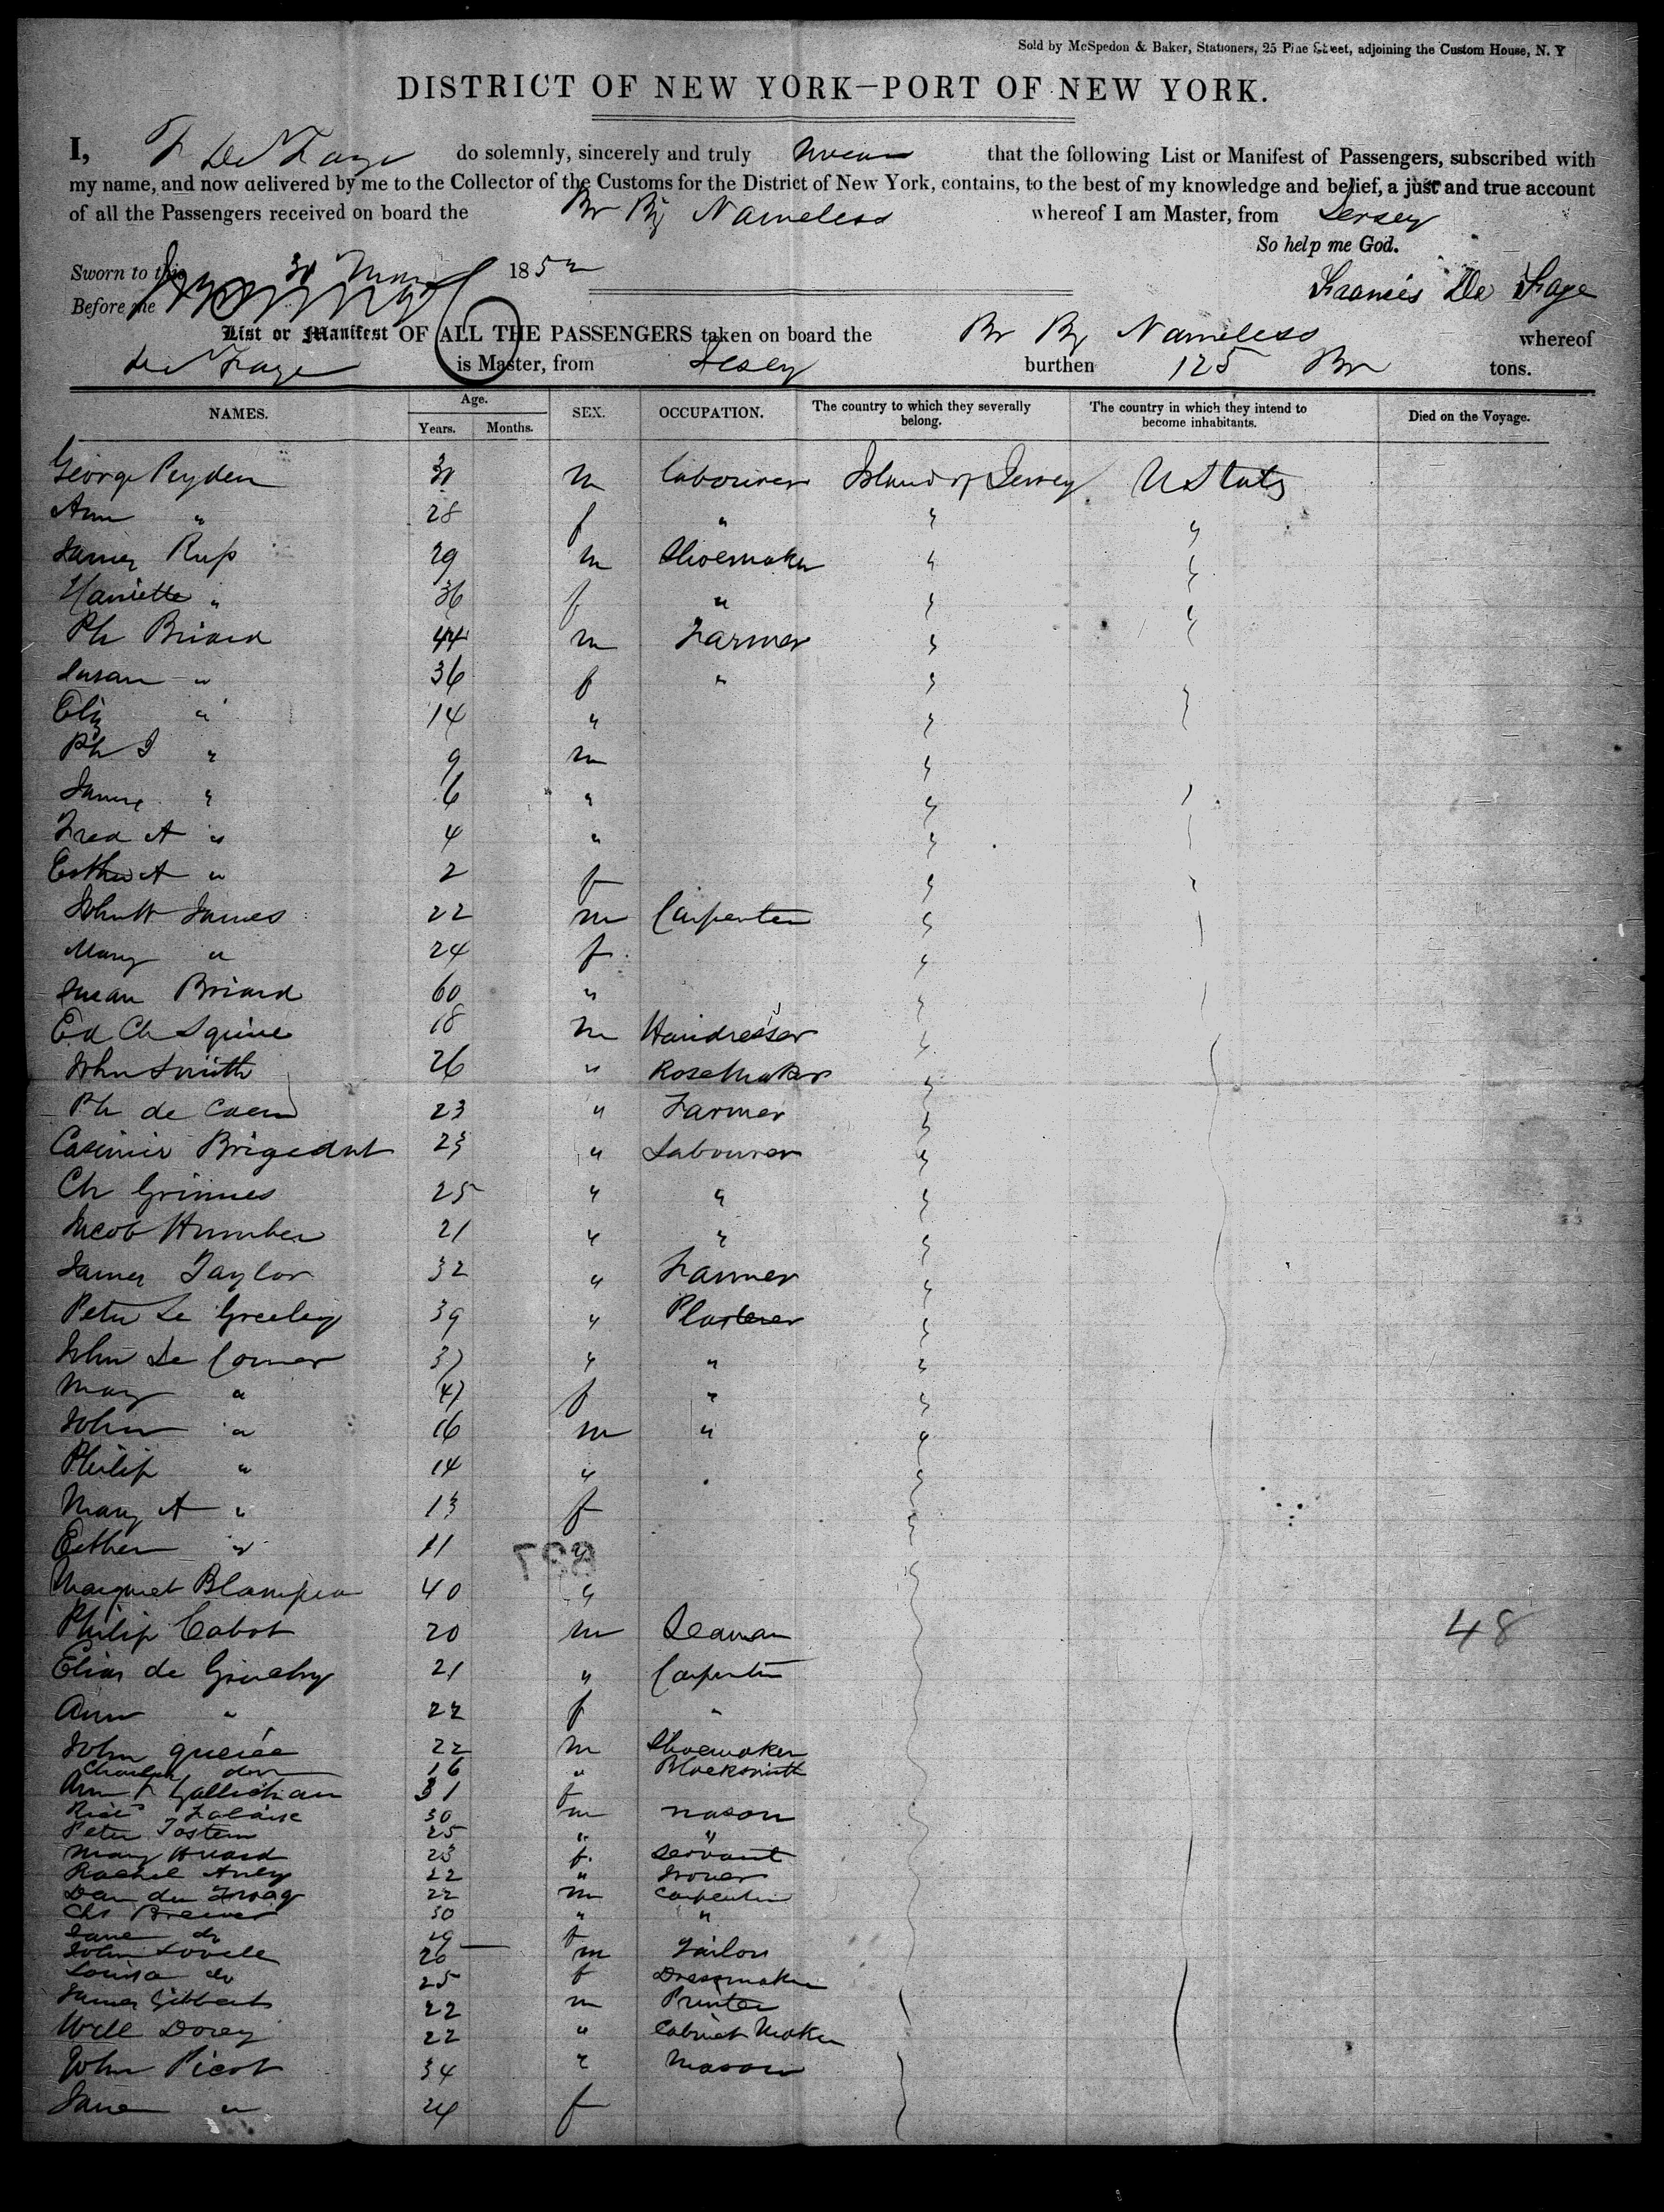 Sold by McSpedon & Baker, Stationers, 25 Pine Street, adjoining the Custom House, N. Y
DISTRICT OF NEW YORK—PORT OF NEW YORK.
I, F De Faye do solemnly, sincerely and truly swear that the following List or Manifest of Passengers, subscribed with
my name, and now delivered by me to the Collector of the Customs for the District of New York, contains, to the best of my knowledge and belief, a just and true account
of all the Passengers received on board the Br Bg Nameless whereof I am Master, from Jersey
So help me God.
Sworn to this 31 May 1852
Before me
Francis De Faye
List or Manifest OF ALL THE PASSENGERS taken on board the Br Bg Nameless whereof
de Faye is Master, from Jersey burthen 125 tons.
NAMES. Age. Years. Months. SEX. OCCUPATION. The country to which they severally belong. The country in which they intend to become inhabitants. Died on the Voyage.
George 31 m labourer Island of Jersey U States
Ann " 28 f " " "
James 29 m Shoemaker " "
Harriette " 36 f " " "
Ph Briard 44 m Farmer " "
Susan " 36 f " "
Eliz " 14 " "
Ph J " 9 m "
James " 6 " "
Fred A " 4 " "
Esther A " 2 f "
John W James 22 m Carpenter "
Mary " 24 f "
Susan Briard 60 " "
Ed Ch Squire 18 m Hairdresser "
John Smith 26 " "
Ph de Caen 23 " Farmer "
Casimir 23 " Labourer "
Ch Grimes 25 " " "
Jacob Humber 21 " " "
James Taylor 32 " Farmer "
Peter Le 39 " Plasterer "
John Le Cornu 37 " " "
Mary " 47 f " "
John " 16 m " "
Philip " 14 " "
Mary A " 13 f "
Esther " 11 "
697
Margaret Blampied 40 "
Philip Cabot 20 m Seaman
48
Elias de Gruchy 21 " Carpenter
Ann " 22 f "
John Querée 22 m Shoemaker
Charles do 16 " Blacksmith
Ann Gallichan 31 f
30 m mason
Peter Tostevin 25 " "
Mary Huard 23 f. servant
Rachel 22 "
22 m Carpenter
Chs Brewer 30 " "
Jane do 29 f
John Lovell 26 m Tailor
Louisa do 25 f Dressmaker
James Gibbert 22 m Printer
Will Dorey 22 " Cabinet Maker
John Picot 34 " Mason
Jane " 24 f